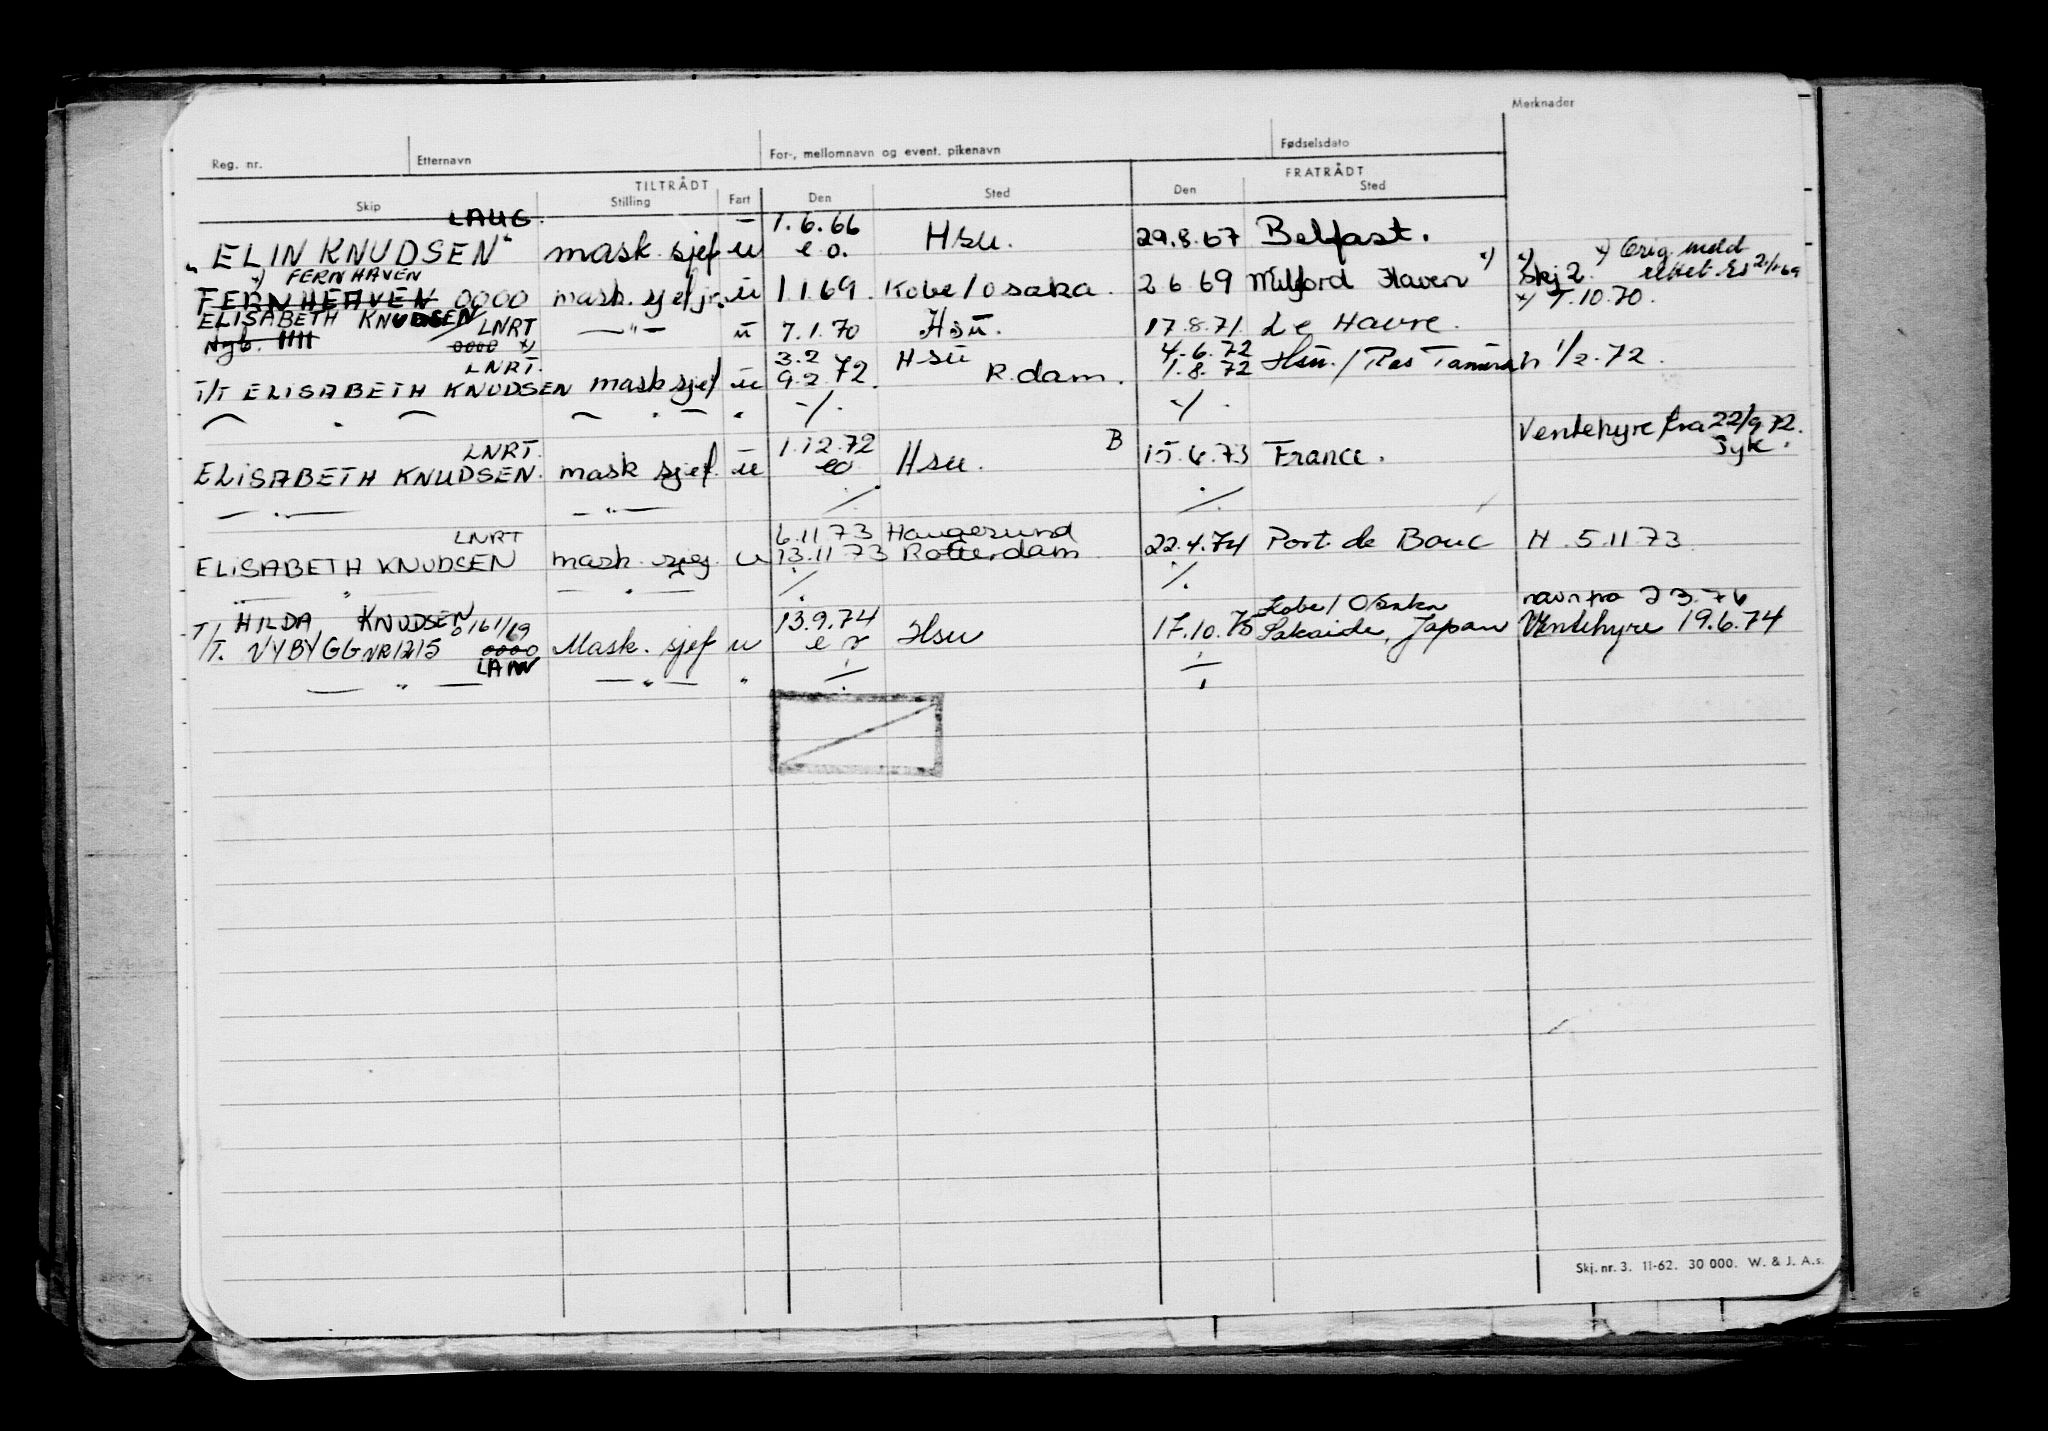 Merknader
Reg. nr. Etternavn For-, mellomnavn og event. pikenavn Fødselsdato
TILTRÅDT FRATRÅDT
Skip Stilling Fart Den Sted Den Sted
LAUG. - 1.6.66
"ELIN KNUDSEN" mask. sjef u e.o. Hsu. 29.8.67 Belfast.
x) Orig. meld
x) FERNHAVEN
FERNHEAVEN 0000 mask. sjef jr. u 1.1.69. Kobe/Osaka. 2 6 69 Milford Haven x) Skj 2.
x) T.10.70.
ELISABETH KNUDSEN LNRT
Nyb. 0000 x) — " — u 7.1.70 Hsu. 17.8.71 Le Havre.
LNRT. 3.2 Hsu 4.6.72
T/T ELISABETH KNUDSEN mask sjef u 9.2 72. R.dam. 1.8.72 Hsu. / Ras Tanurah 1/2.72.
— " — — " — " ./. ./.
Ventehyre fra 22/9.72.
Syk.
LNRT. 1.12.72 B
ELISABETH KNUDSEN. mask sjef. u eo Hsu. 15.6.73 France.
— " — — " — ./. ./.
LNRT 6.11 73 Haugesund
ELISABETH KNUDSEN mask. sjef. u 13.11 73 Rotterdam 22.4.74 Port de Bouc H. 5.11 73
" " — " — ./. ./.
navn fra 2 3.76
T/ HILDA KNUDSEN 161/69 13.9.74 Kobe/Osaka
T/T. NYBYGG NR 1215 0000 Mask. sjef u e r Hsu 17.10.75 Sakaide, Japan Ventehyre 19.6.74
LANN
— " — — " — " ./. ./.
Skj. nr. 3. 11-62. 30 000. W. & J. A.s.